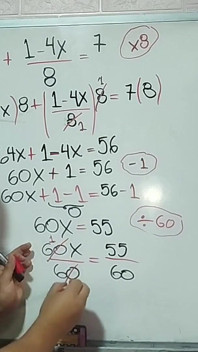 + 1-4x/8 = 7 x8
x)8 + (1-4x/8 1) 8 1 = 7(8)
64x+1-4x=56
60x+1=56 -1
60x+1-1=56-1
0
60x=55 ÷60
60x/60 = 55/60